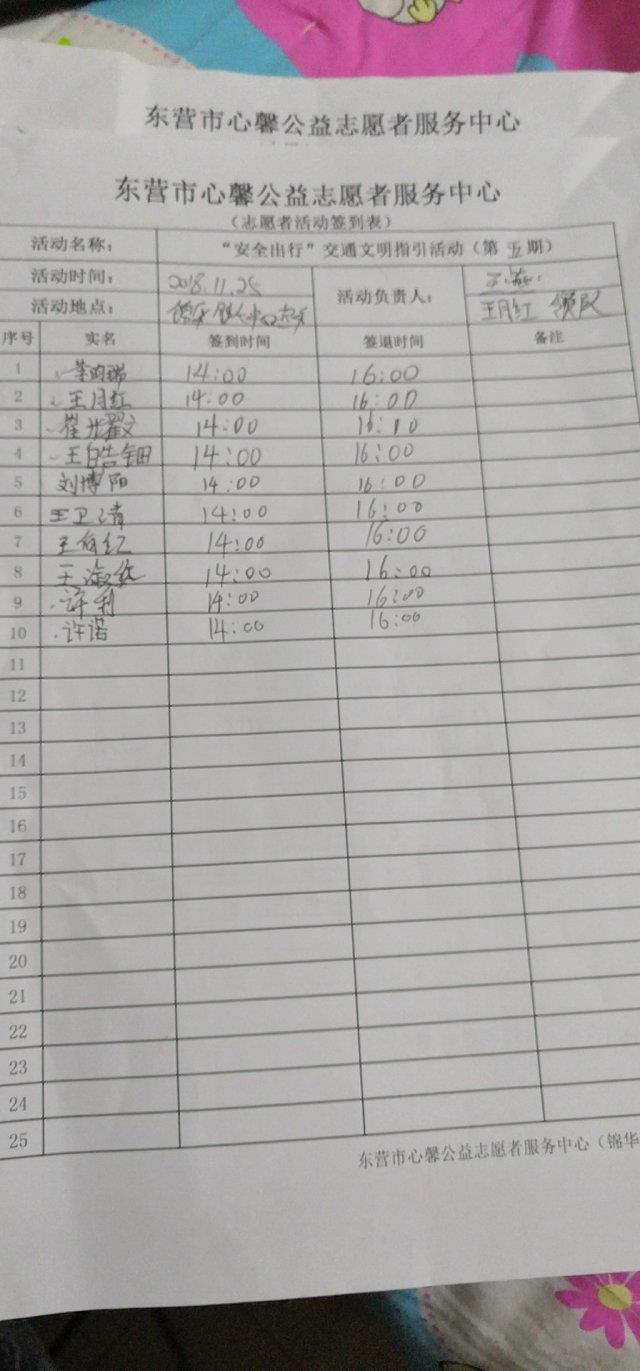 东营市心馨公益志愿者服务中心
东营市心馨公益志愿者服务中心
（志愿者活动签到表）
活动名称： “安全出行”交通文明指引活动（第 五 期）
活动时间： 2018.11.25 活动负责人：
活动地点： 王月红 领队
序号 实名 签到时间 签退时间 备注
1 14:00 16:00
2 王月红 14:00 16:00
3 14:00 16:10
4 14:00 16:00
5 刘博阳 14:00 16:00
6 王卫清 14:00 16:00
7 14:00 16:00
8 14:00 16:00
9 许利 14:00 16:00
10 许诺 14:00 16:00
11
12
13
14
15
16
17
18
19
20
21
22
23
24
25
东营市心馨公益志愿者服务中心（锦华